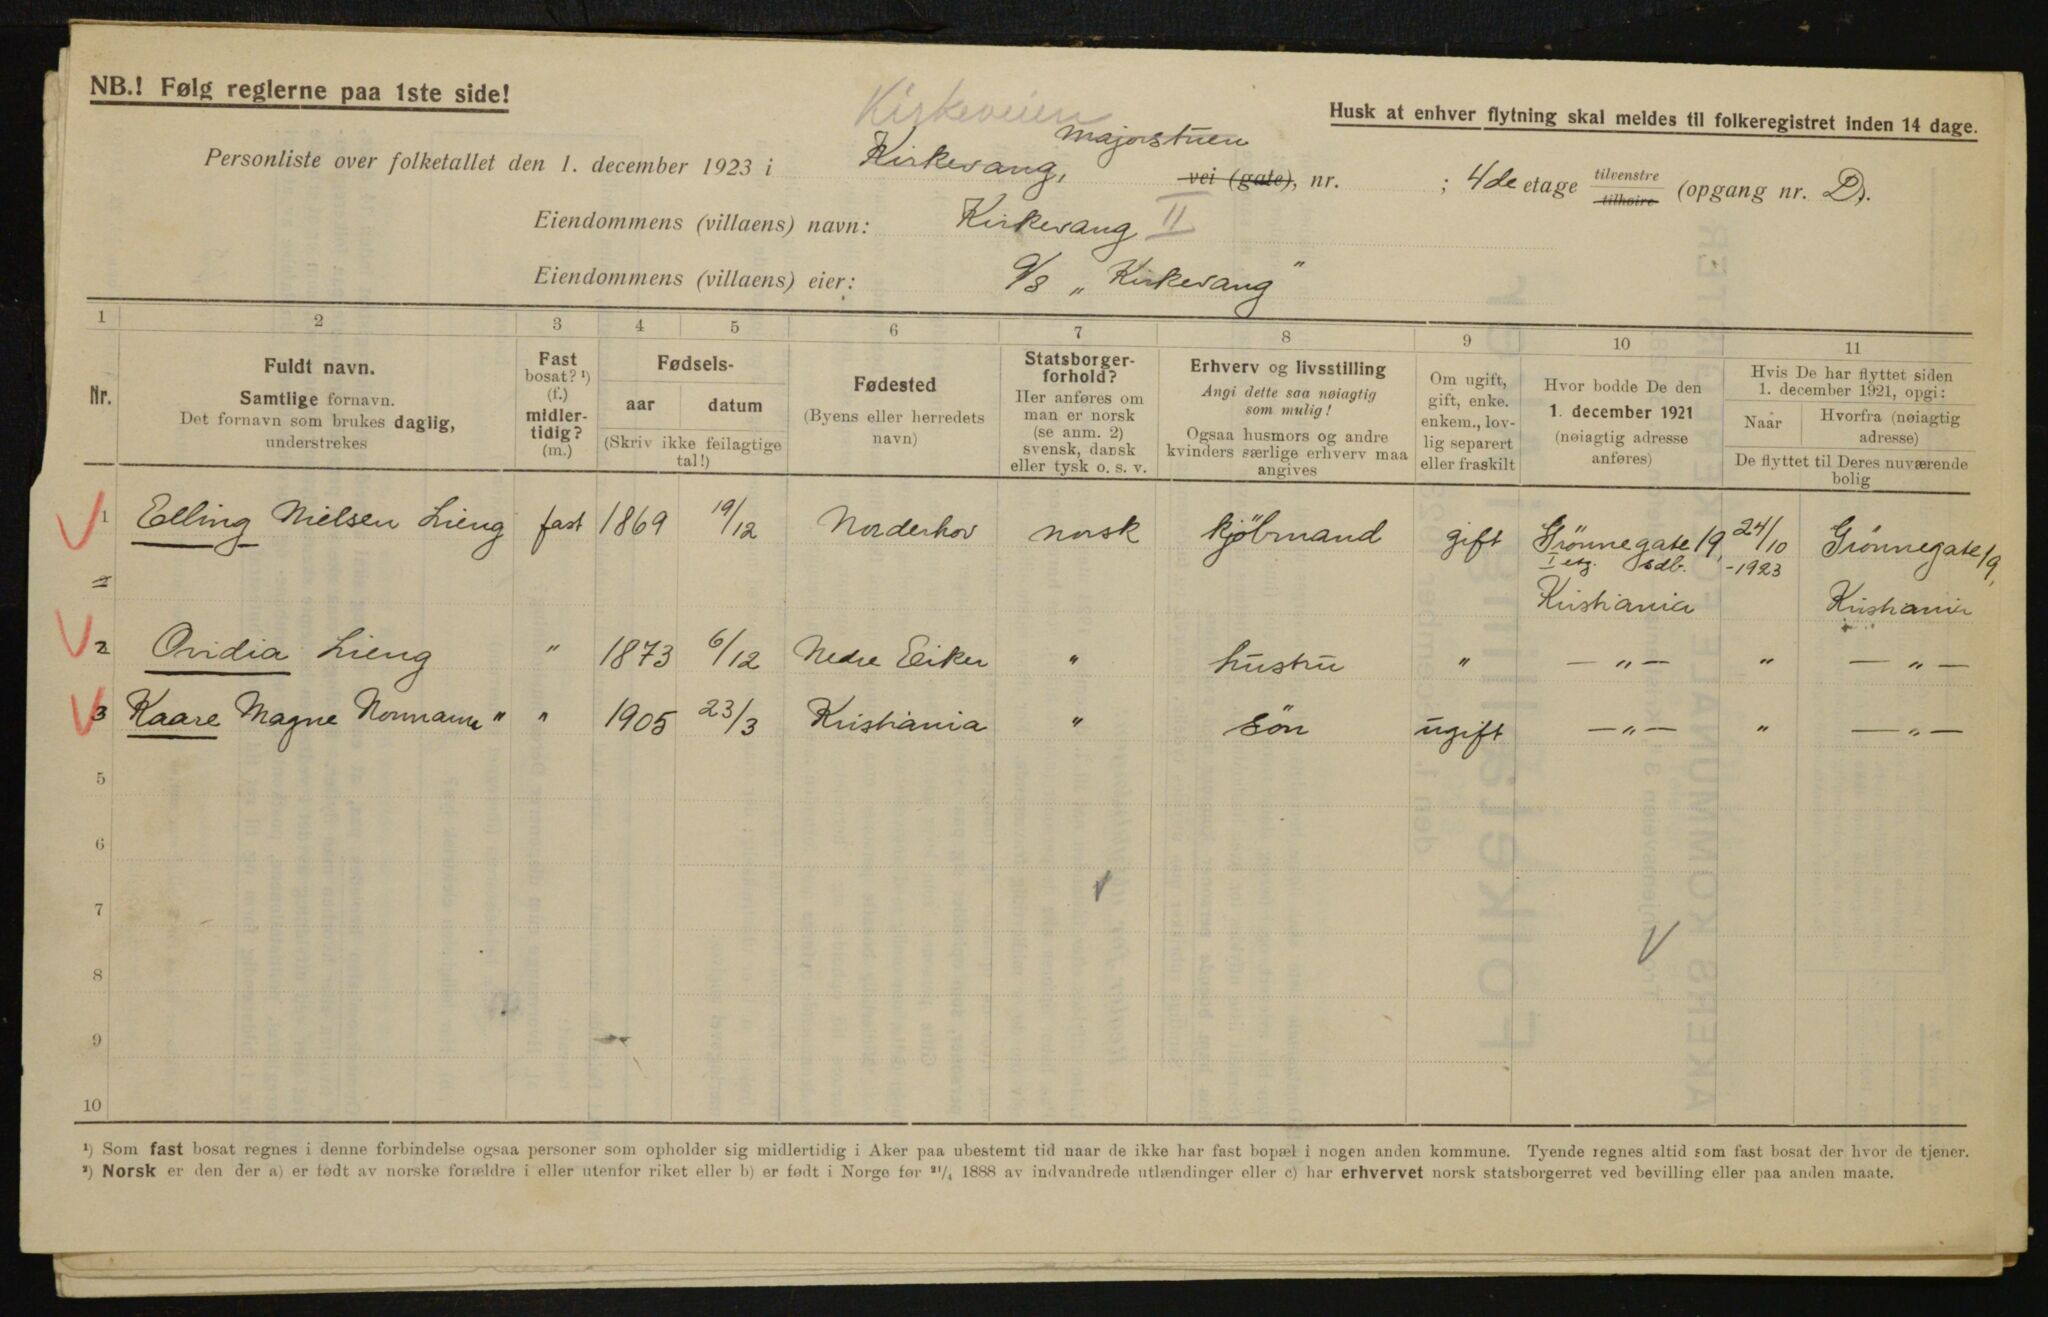 NB.! Følg reglerne paa 1ste side!
Kirkeveien
Husk at enhver flytning skal meldes til folkeregistret inden 14 dage.
Majorstuen
Personliste over folketallet den 1. december 1923 i Kirkevang, vei (gate), nr. ; 4de etage tilvenstre tilhøire (opgang nr. D).
Eiendommens (villaens) navn: Kirkevang II
Eiendommens (villaens) eier: "Kirkevang"
1 2 3 4 5 6 7 8 9 10 11
Nr.
Fuldt navn.
Samtlige fornavn.
Det fornavn som brukes daglig,
understrekes
Fast
bosat? ¹)
(f.)
midler-
tidig?
(m.)
Fødsels-
aar datum
(Skriv ikke feilagtige
tal!)
Fødested
(Byens eller herredets
navn)
Statsborger-
forhold?
Her anføres om
man er norsk
(se anm. 2)
svensk, dansk
eller tysk o. s. v.
Erhverv og livsstilling
Angi dette saa nøiagtig
som mulig!
Ogsaa husmors og andre
kvinders særlige erhverv maa
angives
Om ugift,
gift, enke.
enkem., lov-
lig separert
eller fraskilt
Hvor bodde De den
1. december 1921
(nøiagtig adresse
anføres)
Hvis De har flyttet siden
1. december 1921, opgi:
Naar Hvorfra (nøiagtig
adresse)
De flyttet til Deres nuværende
bolig
1 Elling Nielsen Lieng fast 1869 19/12 Norderhov norsk kjöbmand gift Grönnegate 19, 24/10 Grönnegate 19,
I etg. sdb. -1923
2 Kristiania Kristiania
2 Ovidia Lieng " 1873 6/12 Nedre Eiker " hustru " — " — " — " —
3 Kaare Magne Normann " " 1905 23/3 Kristiania " sön ugift — " — " — " —
5
6
7
8
9
10
¹) Som fast bosat regnes i denne forbindelse ogsaa personer som opholder sig midlertidig i Aker paa ubestemt tid naar de ikke har fast bopæl i nogen anden kommune. Tyende regnes altid som fast bosat der hvor de tjener.
²) Norsk er den der a) er født av norske forældre i eller utenfor riket eller b) er født i Norge før ²¹/₄ 1888 av indvandrede utlændinger eller c) har erhvervet norsk statsborgerret ved bevilling eller paa anden maate.